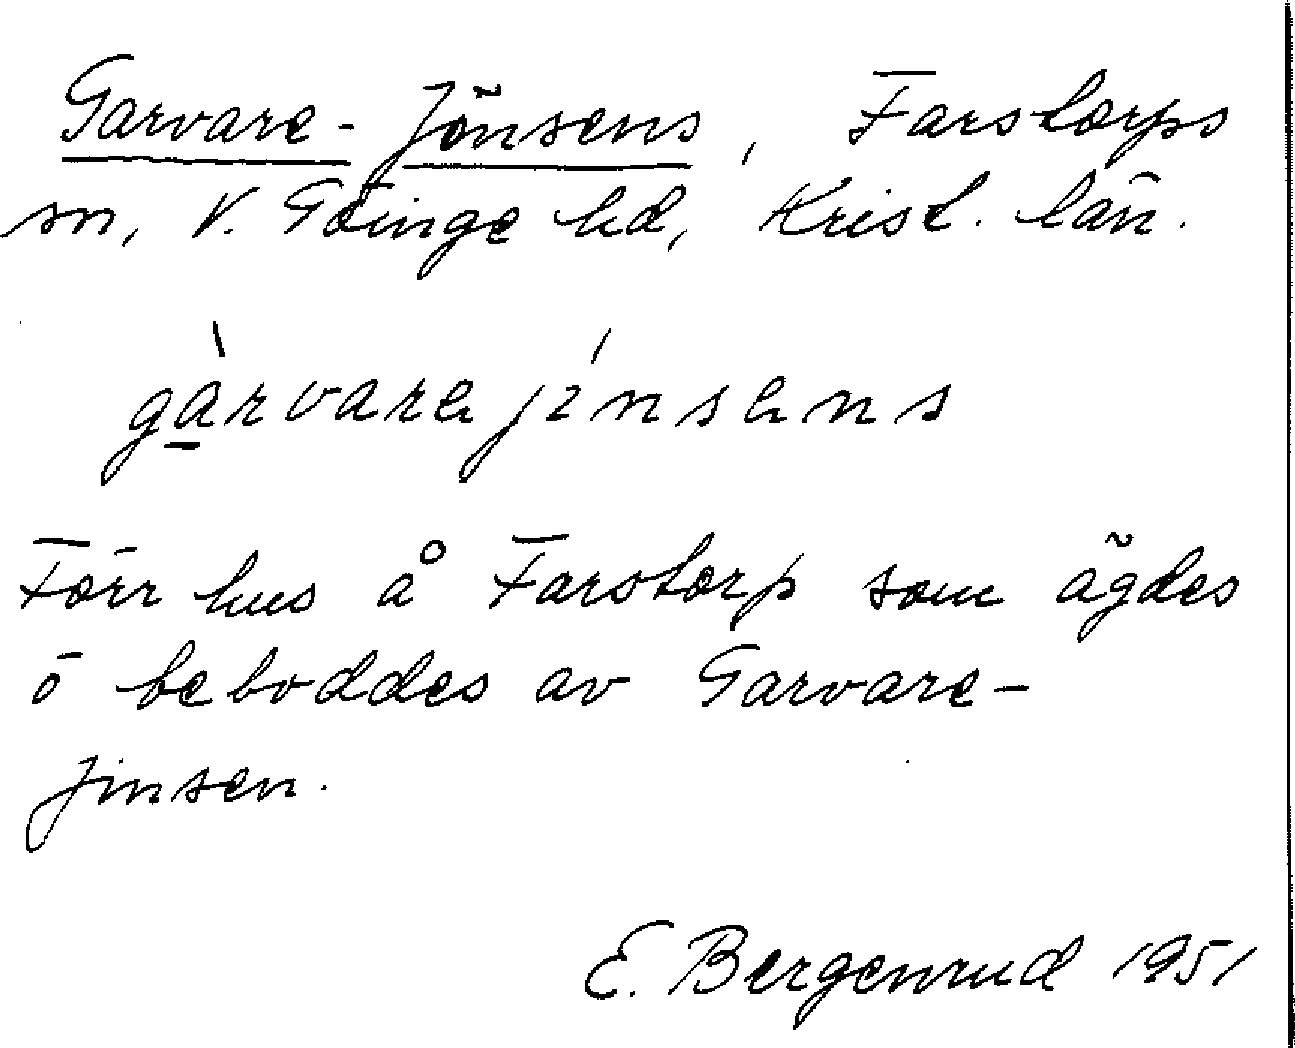 Garvare-Jönsens, Farstorps
sn, V. Göinge hd, Krist. län.
gàrvare jínsens
Förr hus å Farstorp som ägdes
ō beboddes av Garvare-
Jinsen.
E. Bergenrud 1951